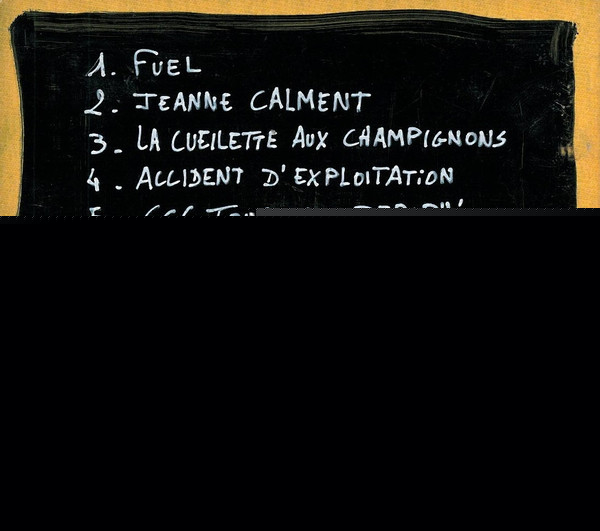 1. FUEL
2. JEANNE CALMENT
3. LA CUEILETTE AUX CHAMPIGNONS
4. ACCIDENT D'EXPLOITATION